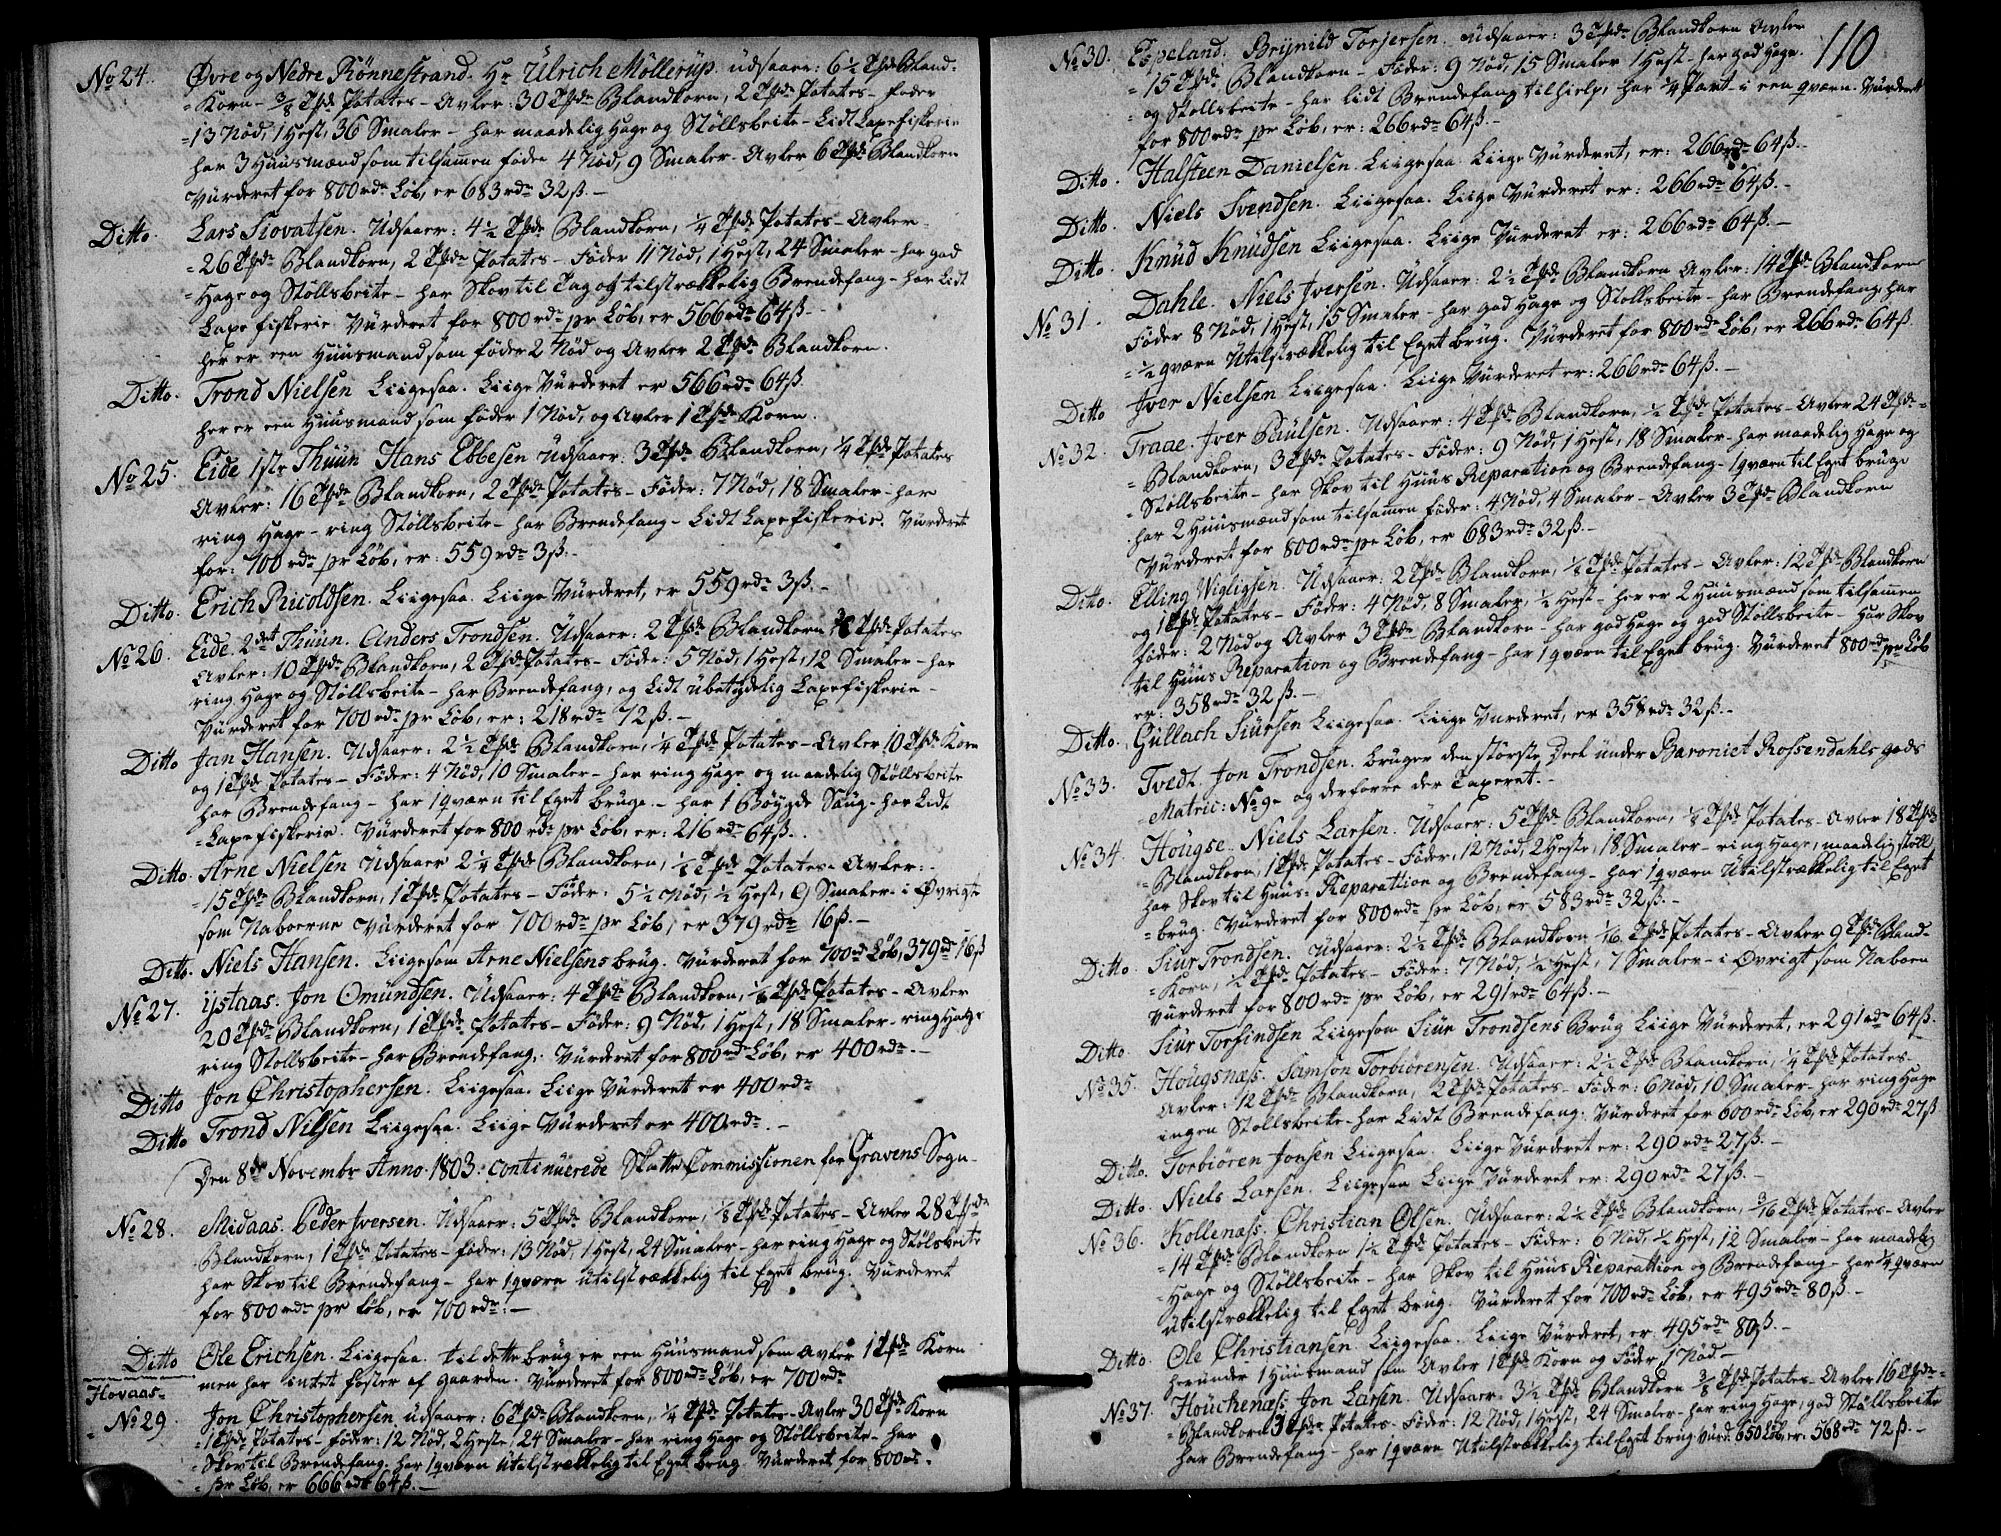 No 24. Øvre og Nedre Rönnestrand. Hr Ülrich Möllerüp. üdsaaer: 6½ Tpde Bland-
=Korn- 3/8 Tpde Potates - Avler: 30 Tpde Blandkorn, 2 Tpde Potates - føder
=13 Nöd, 1 Hest, 36 Smaler - har maadelig Hage og Stöllsbeite - Lidt Laxefiskerie
har 3 Huusmænd som tilsamen føder 4 Nöd, 9 Smaler - Avler 6 Tpde Blandkorn
Vürderet for 800 rdr Löb, er 683 rdr 32 ß. -
Ditto. Lars Siovatsen. Üdsaaer: 4½ Tpde Blandkorn, ¼ Tpde Potates - Avler
=26 Tpde Blandkorn, 2 Tpde Potates - Føder 11 Nöd, 1 Hest, 24 Smaler - har god
=Hage og Stöllsbeite - har Skov til Tag og tilstrækkelig Brendefang - har Lidt
Laxefiskerie. Vürderet for 800 rdr pr Löb, er 566 rdr 64 ß. -
her er een Huusmand som føder 2 Nöd og Avler 2 Tpde Blandkorn.
Ditto. Trond Nielsen Liigesaa. Liige Vürderet er 566 rdr 64 ß.
her er een Huusmand som føder 1 Nöd, og Avler 1 Tpde Korn.
No 25. Eide 1ste Thüün Hans Ebbesen Üdsaaer: 3 Tpde Blandkorn, ¼ Tpde Potates
Avler: 16 Tpde Blandkorn, 2 Tpde Potates - Føder: 7 Nöd, 18 Smaler - har
ring Hage - ring Stöllsbeite - har Brendefang - Lidt Laxefiskerie. Vürderet
for: 700 rdr pr Löb, er: 559 rdr 3 ß. -
Ditto. Erich Ricoldsen. Liigesaa. Liige Vürderet, er 559 rdr 3 ß. -
No 26. Eide. 2det Thüün. Anders Trondsen. Üdsaaer: 2 Tpde Blandkorn Tpde Potates
Avler: 10 Tpde Blandkorn, 2 Tpde Potates - Føder: 5 Nöd, 1 Hest, 12 Smaler - har
ring Hage og Stöllsbeite - har Brendefang, og Lidt übetydelig Laxefiskerie -
Vürderet for 700 rdr pr Löb, er: 218 rdr 72 ß. -
Ditto Jan Hansen. Üdsaaer: 2½ Tpde Blandkorn, ¼ Tpde Potates - Avler 10 Tpde Korn
og 1 Tpde Potates - Føder: 4 Nöd, 10 Smaler - har ring Hage og maadelig Stöllsbeite
har Brendefang - har 1 qværn til Eget brüge. - har 1 Böygde Saüg - har Lidt
=Laxefiskerie. Vürderet for 800 rdr pr Löb, er: 216 rdr 64 ß.
Ditto. Arne Nielsen Üdsaaer 2¼ Tpde Blandkorn, Tpde Potates - Avler:
=15 Tpde Blandkorn, 1 Tpde Potates - Føder: 5½ Nöd, ½ Hest, 9 Smaler - i Øvrigt
som Naboerne Vürderet for 700 rdr pr Löb, er 379 rdr 16 ß. -
Ditto. Niels Hansen. Liigesom Arne Nielsens brüg. Vürderet for 700 rdr Löb, 379 rdr 16 ß
No 27. ijstaas. Jon Omündsen. Üdsaaer: 4 Tpde Blandkorn, 1/8 Tpde Potates - Avler
20 Tpde Blandkorn, 1 Tpde Potates - Føder: 9 Nöd, 1 Hest, 18 Smaler - ring Hage
ring Stöllsbeite - har Brendefang. Vürderet for 800 rdr Löb, er 400 rdr. -
Ditto Jon Christophersen. Liigesaa. Liige Vürderet er 400 rdr
Ditto Trond Nilsen Liigesaa. Liige Vürderet er 400 rdr. -
Den 8de Novembr Anno 1803. continuerede Skatte Commissionen for Gravens Sogn -
No 28. Midaas. Peder Iversen. Üdsaaer: 5 Tpde Blandkorn, 1/8 Tpde Potates - Avler 28 Tpde
Blandkorn, 1 Tpde Potates - føder: 13 Nöd, 1 Hest, 24 Smaler - har ring Hage og Stölsbeite
har Skov til Brendefang - har 1 qværn utilstrækkelig til Eget brüg. Vürderet
for 800 rdr pr Löb, er 700 rdr: -
Ditto Ole Erichsen. Liigesaa. til dette brüg er een Huusmand som Avler 1 Tpde Korn
men har intet foster af gaarden. Vürderet for 800 rdr Löb, er 700 rdr
Hovaas-
No 29 Jon Christophersen üdsaaer: 6 Tpde Blandkorn, ¼ Tpde Potates - Avler 30 Tpde Korn
=1 Tpde Potates - føder: 12 Nöd, 2 Heste, 24 Smaler - har ring Hage og Stöllsbeite - har
=Skov til Brendefang. har 1 qværn utilstrækkelig til Eget brüg. Vürderet for 800 rdr
=pr Löb, er 666 rdr 64 ß. -
110
No 30. Espeland. Brijnild Torjersen. Üdsaaer: 3 Tpde Blandkorn Avler
=15 Tpde Blandkorn - Føder: 9 Nöd, 15 Smaler 1 Hest - har god Hage.
og Stöllsbeite - har lidt Brendefang til hielp, har ¼ Part i een qværn. Vürderet
for 800 rdr pr Löb, er: 266 rdr 64 ß. -
Ditto. Halsteen Danielsen. Liigesaa. Liige Vürderet, er: 266 rdr 64 ß. -
Ditto. Niels Svendsen. Liigesaa. Liige Vürderet er: 266 rdr 64 ß. -
Ditto. Knüd Knüdsen Liigesaa. Liige Vürderet er: 266 rdr 64 ß. -
No 31. Dahle. Niels Iversen. Üdsaaer: 2½ Tpde Blandkorn Avler: 14 Tpde Blandkorn
Føder 8 Nöd, 1 Hest, 15 Smaler - har god Hage og Stöllsbeite - har Brendefang, har
=½ qværn Utilstrækkelig til Eget brüg. Vürderet for 800 rdr Löb, er 266 rdr 64 ß.
Ditto Iver Nielsen Liigesaa. Liige Vürderet er: 266 rdr 64 ß. -
No 32. Traae. Iver Paülsen. Üdsaaer: 4 Tpde Blandkorn, ½ Tpde Potates - Avler 24 Tpde
=Blandkorn, 3 Tpde Potates - Føder: 9 Nöd, 1 Hest, 18 Smaler - har maadelig Hage og
=Stöllsbeite - har Skov til Huus Reparation og Brendefang - 1 qværn til Eget brüge
har 2 Huusmænd som tilsamen føder: 4 Nöd, 4 Smaler - Avler 3 Tpde Blandkorn
Vürderet for 800 rdr pr Löb, er 683 rdr 32 ß. -
Ditto. Elling Wigligsen. Üdsaaer: 2 Tpde Blandkorn, 1/8 Tpde Potates - Avler: 12 Tpde Blandkorn
og 1 Tpde Potates - Føder: 4 Nöd, 8 Smaler, ½ Hest - her er 2 Huusmænd som tilsamen
føder: 2 Nöd og Avler 3 Tpde Blandkorn - har god Hage og god Stöllsbeite - Har Skov
til Huus Reparation og Brendefang - har 1 qværn til Eget brüg. Vürderet 800 rdr pr Löb
er: 358 rdr 32 ß. -
Ditto. Güllach Siürsen Liigesaa. Liige Vurderet, er 358 rdr 32 ß. -
No 33. Tvedt. Jon Trondsen. brüger den störste Deel ünder Baroniet Rossendahls gods
=Matric: No 9 - og derforre der Taxeret. -
No 34. Hoügse. Niels Larsen. Üdsaaer: 5 Tpde Blandkorn, 1/8 Tpde Potates - Avler 18 Tpde
=Blandkorn, 1 Tpde Potates - Føder, 12 Nöd, 2 Heste, 18 Smaler - ring Hage, maadelig Stöll
har Skov til Huus-Reparation og Brendefang - har 1 qværn Utilstrækkelig til Eget
=brüg. Vürderet for 800 rdr pr Löb, er 583 rdr 32 ß. -
Ditto. Siur Trondsen. Üdsaaer: 2½ Tpde Blandkorn 1/16 Tpde Potates - Avler 9 Tpde Bland-
=Korn, ½ Tpde Potates - Føder: 7 Nöd, ½ Hest, 7 Smaler - i Øvrigt som Naboen
Vurderet for 800 rdr pr Löb, er 291 rdr 64 ß. -
Ditto Siur Torfindsen Liigesom Siur Trondsens Brüg Liige Vürderet, er 291 rdr 64 ß.
No 35. Hoügsnæss. Samson Torbiörensen. Üdsaaer: 2½ Tpde Blandkorn, ¼ Tpde Potates -
Avler: 12 Tpde Blandkorn, 2 Tpde Potates - Føder: 6 Nöd, 10 Smaler - har ring Hage
ingen Stöllsbeite - har Lidt Brendefang. Vürderet for 600 rdr Löb, er 290 rdr 27 ß
Ditto. Torbiören Jonsen Liigesaa. Liige Vürderet er: 290 rdr 27 ß. -
Ditto. Niels Larsen. Liigesaa Liige Vürderet er: 290 rdr 27 ß. -
No 36. Kollenæss. Christian Olsen. Üdsaaer: 2½ Tpde Blandkorn, 3/16 Tpde Potates - Avler
=14 Tpde Blandkorn 1½ Tpde Potates - Føder: 6 Nöd, ½ Hest, 12 Smaler - har maadelig
=Hage og Stöllsbeite - har Skov til Huus Reparattion og Brendefang - har ¼ qværn
utilstrækkelig til Eget brüg. Vürderet for 700 rdr Löb, er 495 rdr 80 ß. -
Ditto. Ole Christiansen Liigesaa. Liige Vürderet, er: 495 rdr 80 ß. -
herunder 1 Huusmand som Avler 1 Tpde Korn og Føder 1 Nöd. -
No 37. Hoüchenæss Jon Larsen. Üdsaaer: 3½ Tpde Blandkorn 3/8 Tpde Potates - Avler 16 Tpde
=Blandkorn 3 Tpde Potates - Føder: 12 Nöd, 1 Hest, 24 Smaler - har ring Hage, god Stöllsbeite
har Brendefang - har 1 qværn Utilstrækkelig til Eget brüg Vurd: 650 Löb, er: 568 rdr 72 ß. -